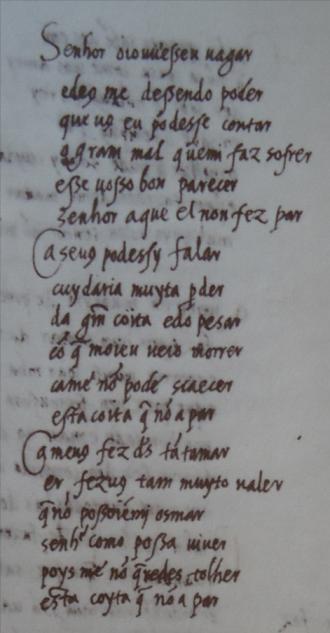 Senhor oiouuessen uagar
edeg me dessendo poder
que ug eu podesse contar
o gram mal quemi faz sofrer
esse uosso bon parecer
Senhor aque el non fez par
Ca seug podessy falar
cuydaria muyta pder
da grm coita edo pesar
cõ q̃ moieu ueio morrer
camẽ nõ pode scaecer
esta coita q̃ nõ a par
Cameug fez ds tãtamar
er fezug tam muyto ualer
q̃ nõ posso osmar
senhr como possa uiuer
poys me nõ q̃redes tolher
esta coyta q̃ nõ a par